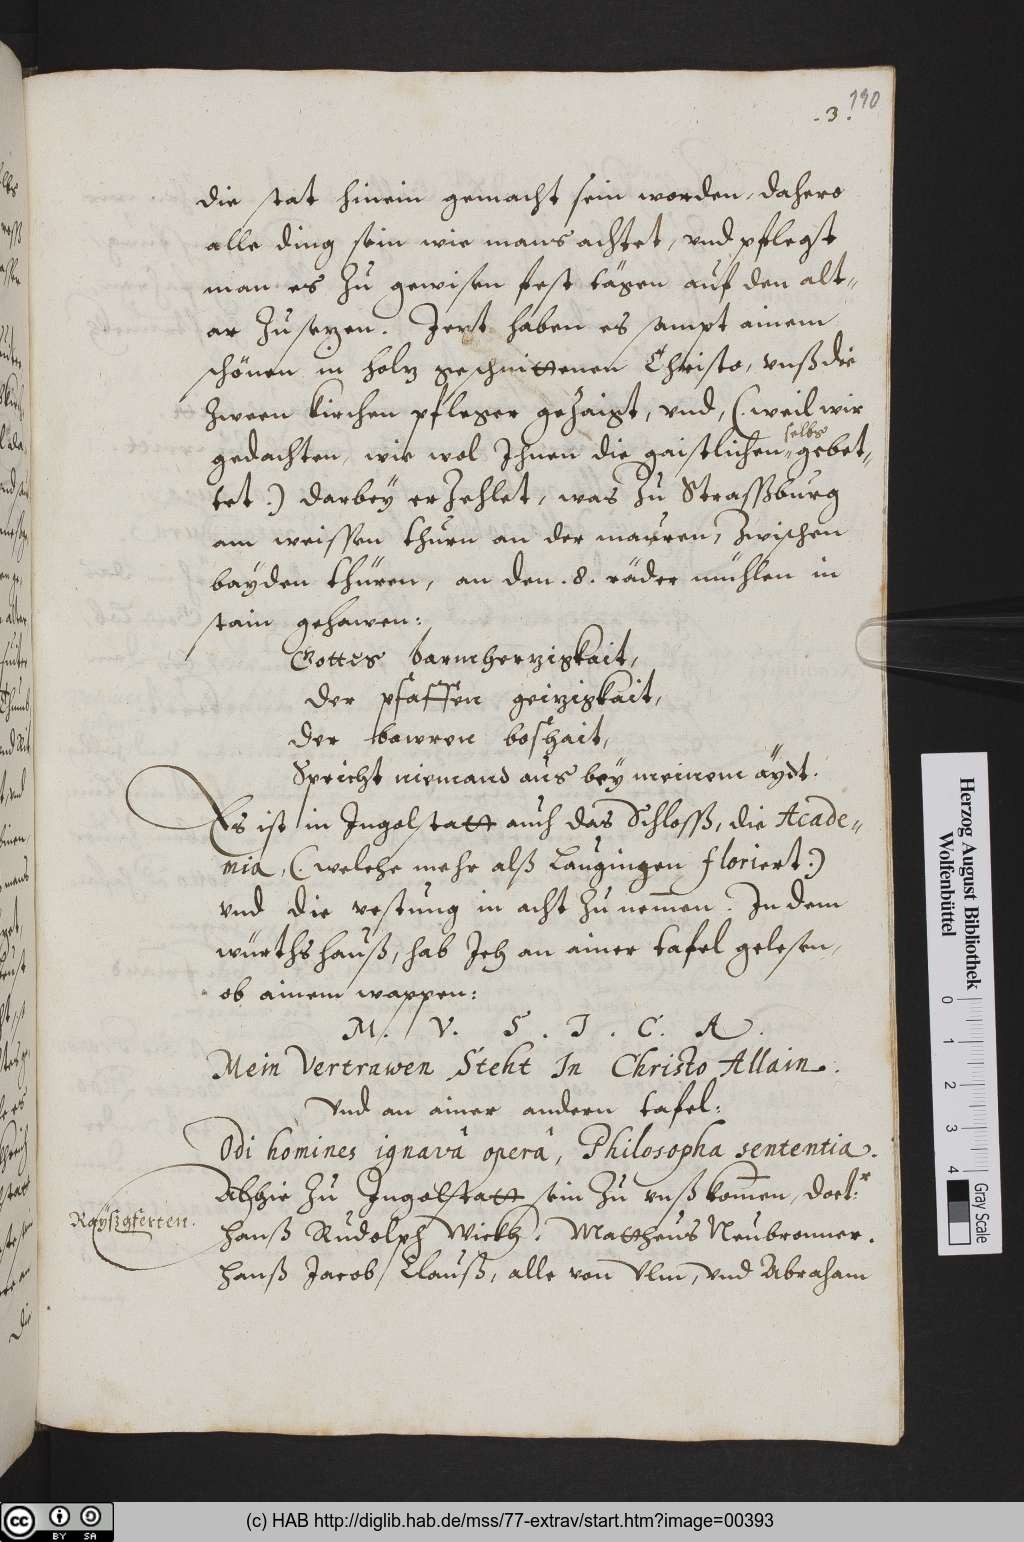 190
. 3 .
die stat hinein gemacht sein worden, dahero
alle ding sein wie mans achtet, vnd pflegt
man es zu gewisen fest tägen auf den alt-
ar zu sezen. Jezt haben es sampt ainem
schönen in holz geschnittenen Christo, vnß die
zween kirchen pfleger gezaigt, vnd, (. weil wir
gedachten, wie wol Ihnen die gaistlichen selbs gebet-
tet .) darbey erzehlet, was zu Strassburg
am weissen thurn an der mauren, zwischen
bayden thüren, an den .8. räder mühlen in
stain gehawen:
Gottes barmherzigkait,
der pfaffen geizigkait,
der bawren boshait,
Spricht niemand aus bey meinem äydt.
Es ist in Ingolstatt auch das Schloss, die Acade-
mia, (. welche mehr alß Laugingen floriert .)
vnd die vestung in acht zu nemen. In dem
würthshauß, hab Ich an ainer tafel gelesen,
ob ainem wappen:
M. V. S. I. C. A.
Mein Vertrawen Steht In Christo Allain.
Vnd an ainer andern tafel:
Odi homines ignavâ operâ, Philosopha sententia.
Rayßgferten.
Alhie zu Ingolstatt sein zu vnß komen, doct:r
Hanß Rudolph Wickh. Mattheus Neubronner.
Hanß Jacob Clauß, alle von Vlm, vnd Abraham
Herzog August Bibliothek
Wolfenbüttel
0 1 2 3 4
Gray Scale
cc BY SA
(c) HAB http://diglib.hab.de/mss/77-extrav/start.htm?image=00393